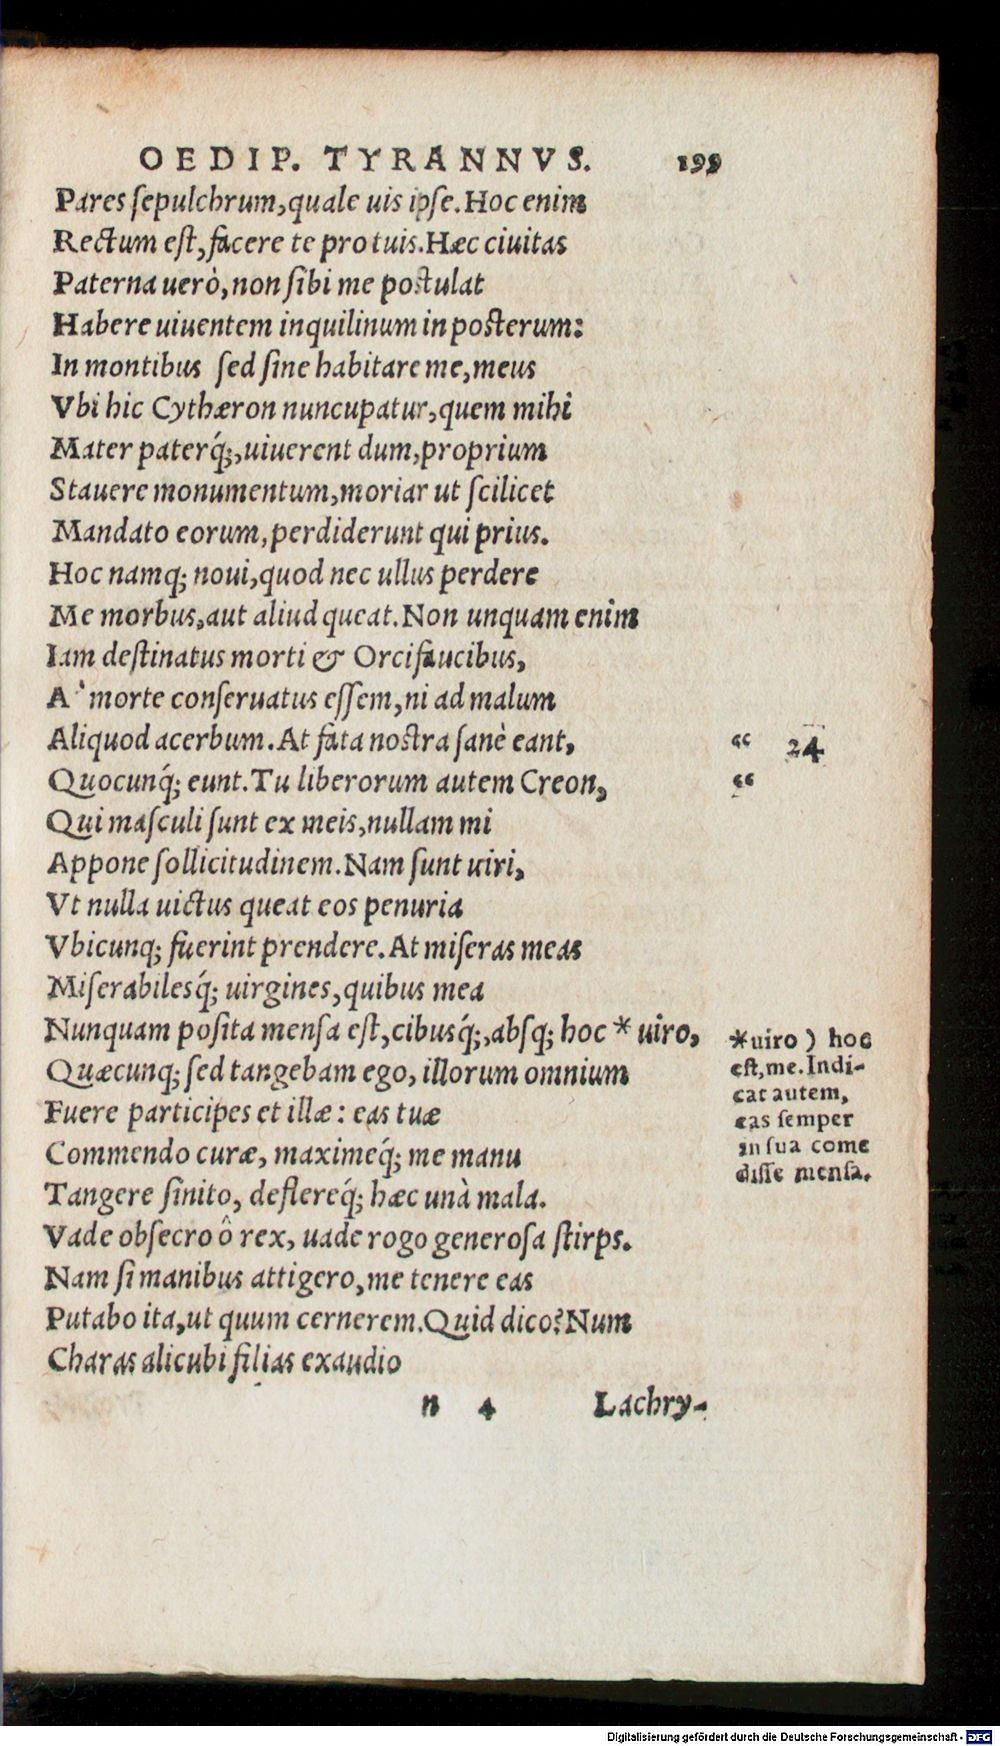 OEDIP. TYRANNVS. 199
Pares ſepulchrum, quale uis ipſe. Hoc enim
Rectum eſt, facere te pro tuis. Hæc ciuitas
Paterna uerò, non ſibi me poſtulat
Habere uiuentem inquilinum in poſterum:
In montibus ſed ſine habitare me, meus
Vbi hic Cythæron nuncupatur, quem mihi
Mater paterq́;, uiuerent dum, proprium
Stauere monumentum, moriar ut ſcilicet
Mandato eorum, perdiderunt qui prius.
Hoc namq; noui, quod nec ullus perdere
Me morbus, aut aliud queat. Non unquam enim
Iam deſtinatus morti & Orci faucibus,
A` morte conſeruatus eſſem, ni ad malum
Aliquod acerbum. At fata noſtra ſanè eant, “ 24
Quocunq́; eunt. Tu liberorum autem Creon, “
Qui maſculi ſunt ex meis, nullam mi
Appone ſollicitudinem. Nam ſunt uiri,
Vt nulla uictus queat eos penuria
Vbicunq; fuerint prendere. At miſeras meas
Miſerabilesq́; uirgines, quibus mea
Nunquam poſita menſa eſt, cibusq́;, absq; hoc * uiro,
Quæcunq; ſed tangebam ego, illorum omnium
Fuere participes et illæ: eas tuæ
Commendo curæ, maximeq́; me manu
Tangere ſinito, deflereq́; hæc unà mala.
Vade obſecro ô rex, uade rogo generoſa ſtirps.
Nam ſi manibus attigero, me tenere eas
Putabo ita, ut quum cernerem. Quid dico? Num
Charas alicubi filias exaudio
*uiro) hoc
eſt, me. Indi-
cat autem,
eas ſemper
in ſua come
diſſe menſa.
n 4 Lachry-
Digitalisierung gefördert durch die Deutsche Forschungsgemeinschaft - DFG